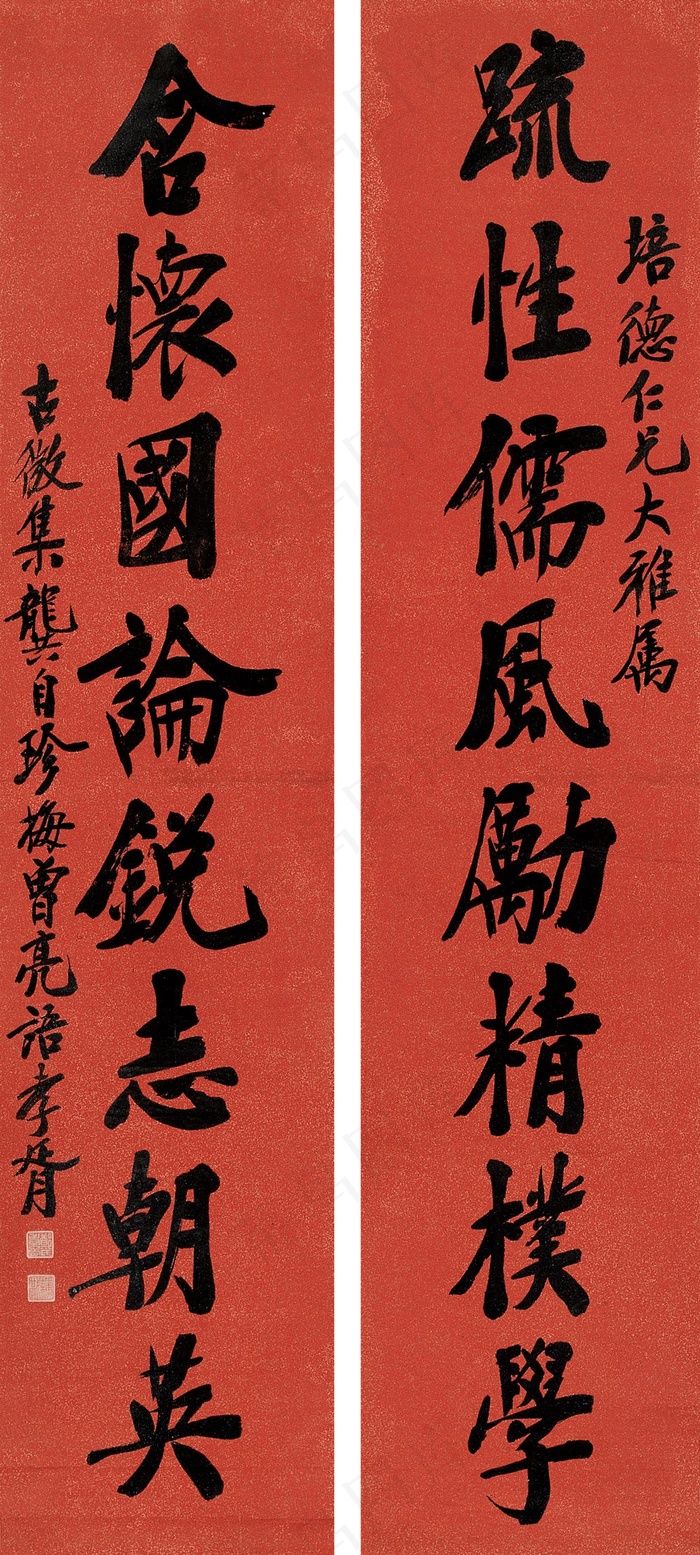 培德仁兄大雅属
疏性儒風勵精樸學
含懷國論鋭志朝英
古微集龔自珍梅曾亮語孝胥